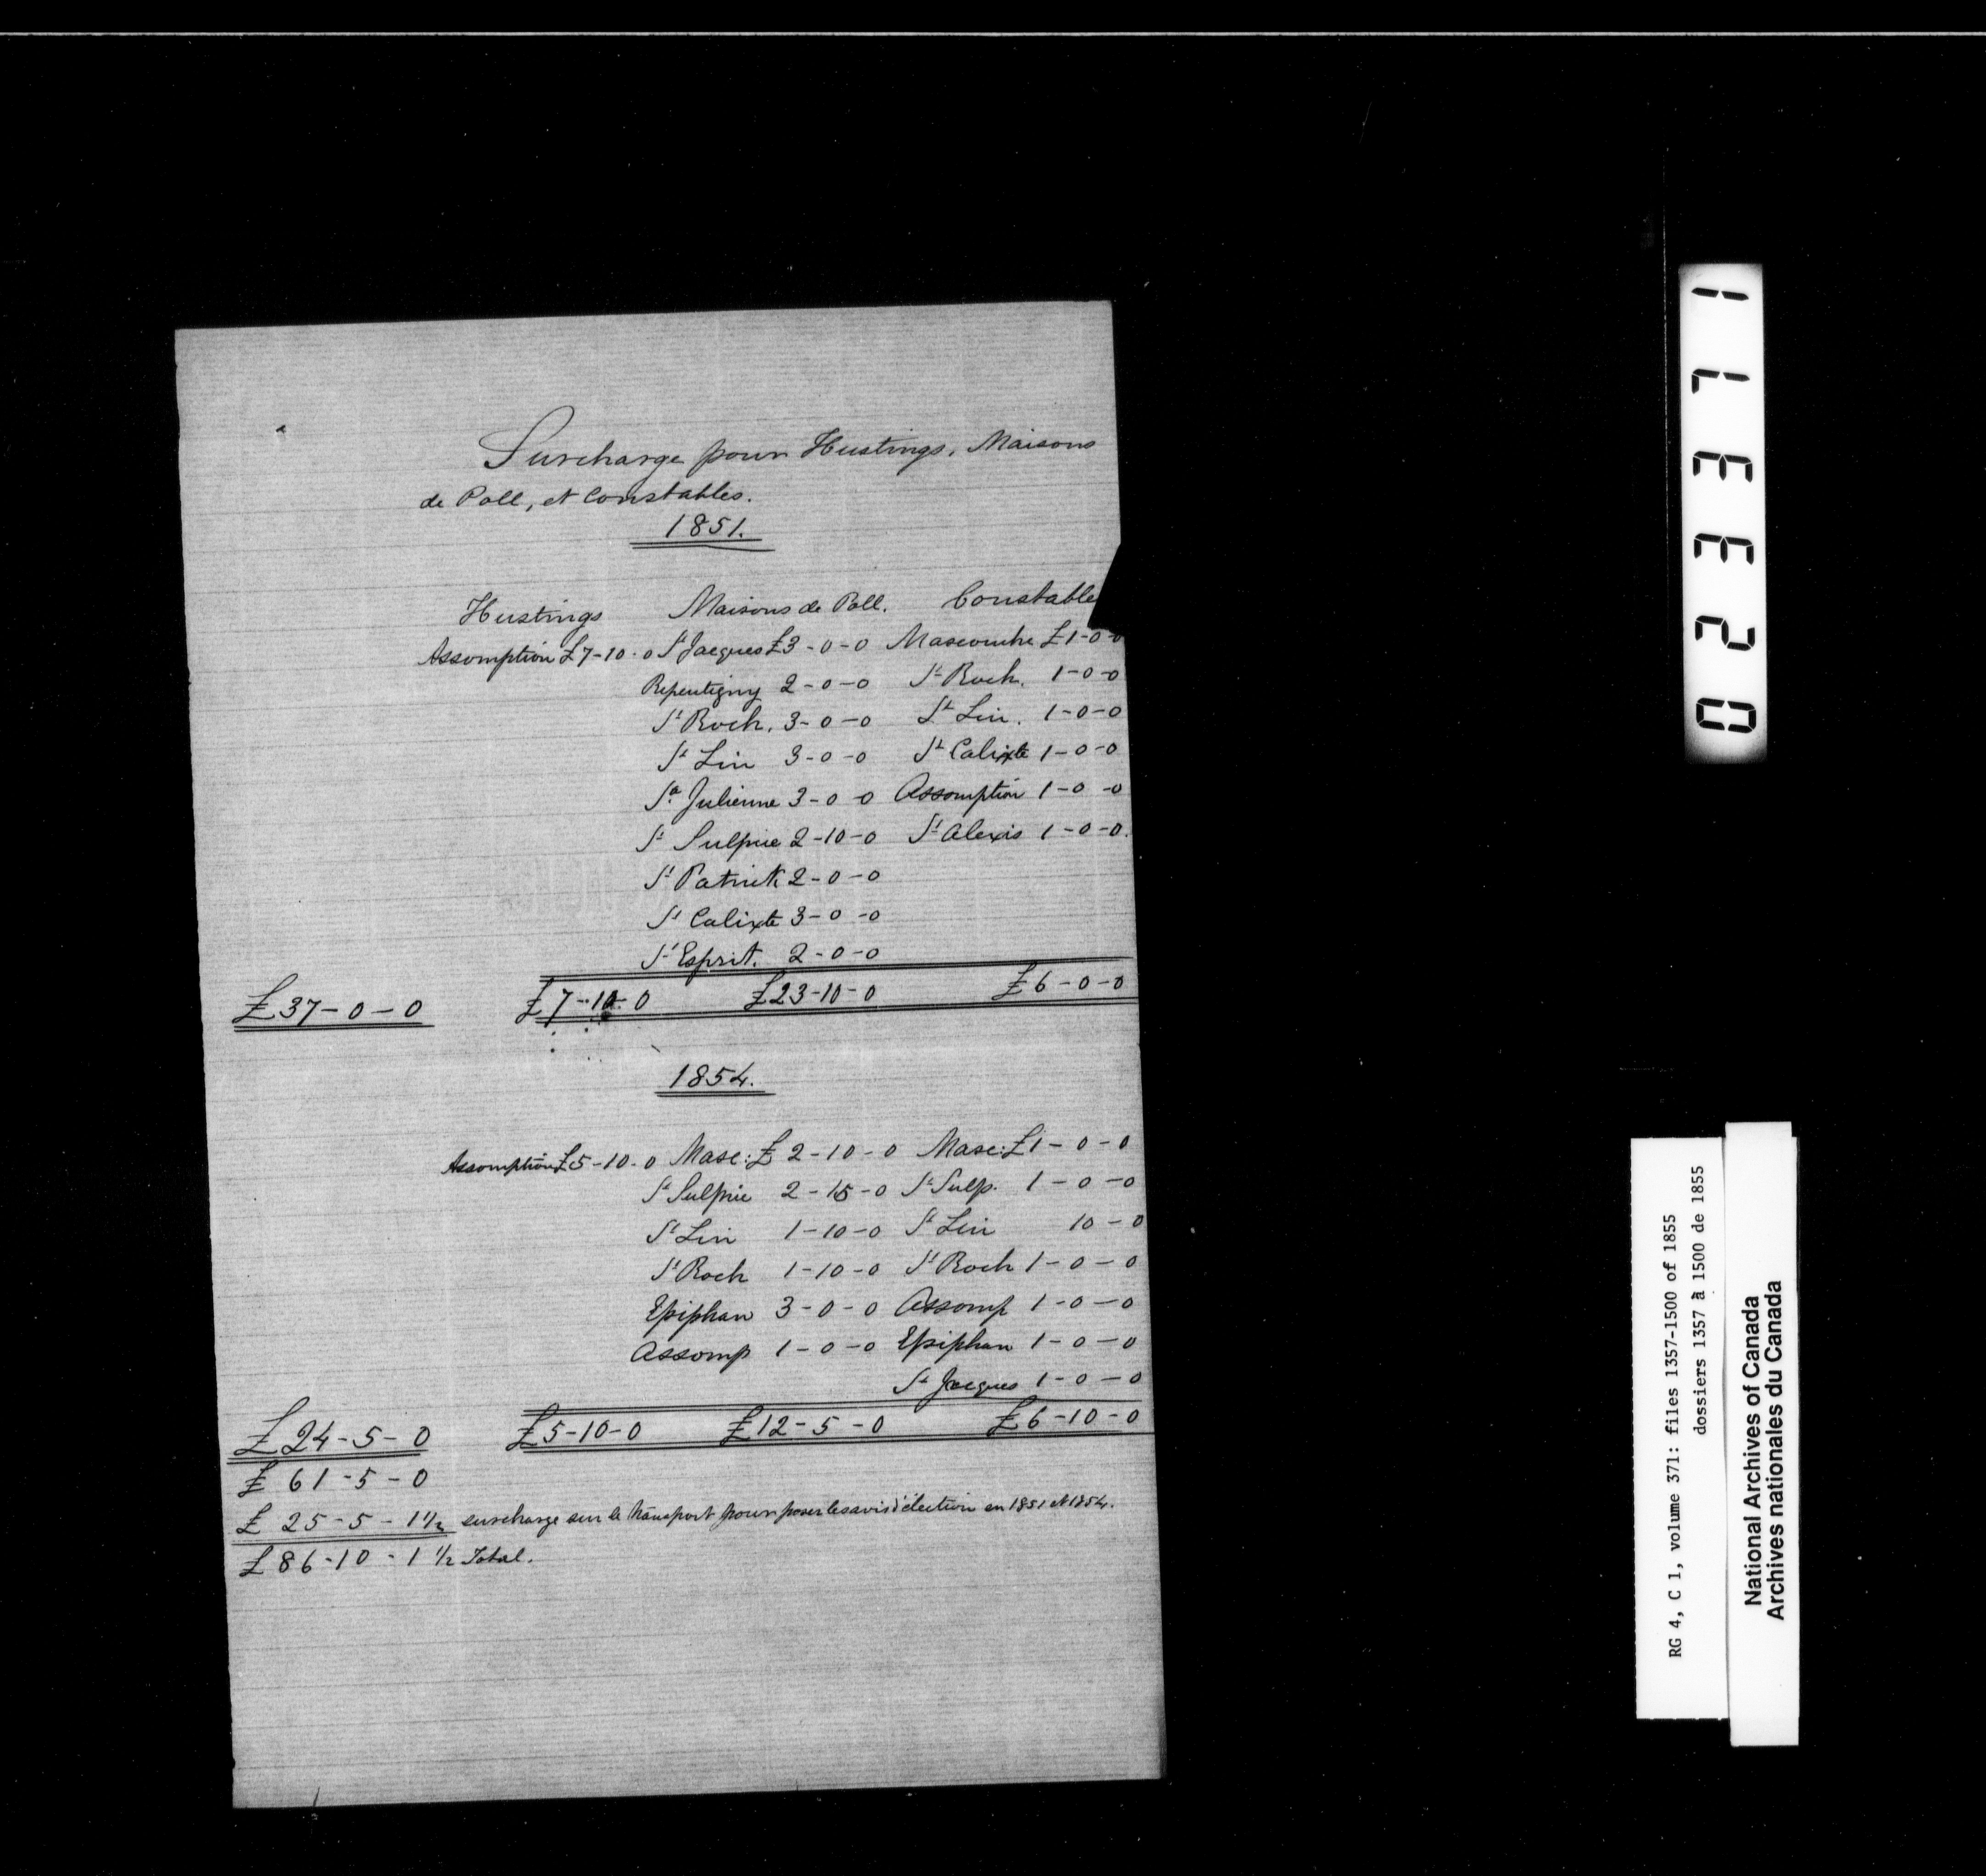 Surcharge pour Hustings, Maisons
de Poll, et Constables.
1851.
Hustings Maisons de Poll. Constable
Assomption £7-10-0 St Jacques £3-0-0 Mascouche £1-0-0
Repentigny 2-0-0 St Roch. 1-0-0
St Roch. 3-0-0 St Lin. 1-0-0
St Lin 3-0-0 St Calixte 1-0-0
Ste Julienne 3-0-0 Assomption 1-0-0
St Sulpice 2-10-0 St Alexis 1-0-0.
St Patrick 2-0-0
St Calixte 3-0-0
St Esprit. 2-0-0
£37-0-0 £7-10-0 £23-10-0 £6-0-0
1854.
Assomption £5-10-0 Masc: £2-10-0 Masc: £1-0-0
St Sulpice 2-15-0 St Sulp. 1-0-0
St Lin 1-10-0 St Lin 10-0
St Roch 1-10-0 St Roch 1-0-0
Epiphan 3-0-0 Assomp 1-0-0
Assomp 1-0-0 Epiphan 1-0-0
St Jacques 1-0-0
£24-5-0 £5-10-0 £12-5-0 £6-10-0
£61-5-0
£25-5-1½ surcharge sur le transport pour poser les avis d'élection en 1851 et 1854.
£86-10-1½ Total.
023371
RG 4, C 1, volume 371: files 1357-1500 of 1855
dossiers 1357 à 1500 de 1855
National Archives of Canada
Archives nationales du Canada